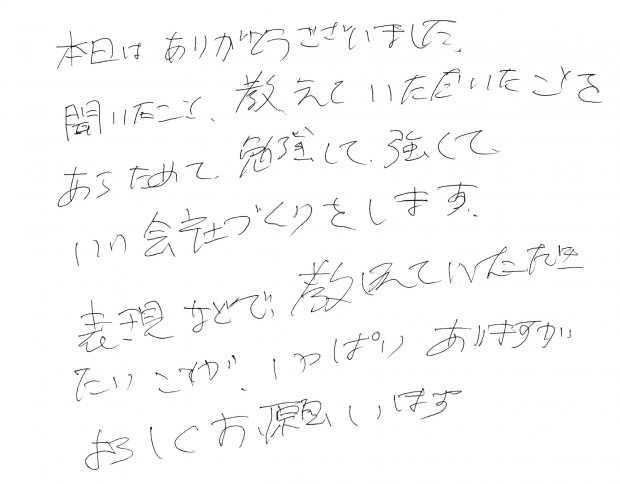 本日は ありがとうございました、
聞いたこと、教えて いただいたことを
あらためて、勉強して、強くて、
いい 会社づくりをします。
表現 などで、教えていただき
たい ことが、いっぱい ありますが
よろしくお願いします